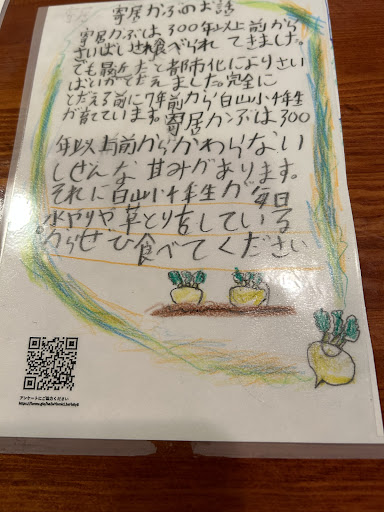 寄居かぶのお話
寄居カブは300年以上前から
さいばいされ食べられてきました。
でも最近、都市化によりさい
ばいがとだえました。完全に
とだえる前に7年前から白山小4年生
が育てています。寄居カンブは300
年以上前からかわらない
しぜんな甘みがあります。
それに白山小4年生が毎日
水やりや草とりをしている
からぜひ食べてください。
アンケートにご協力ください